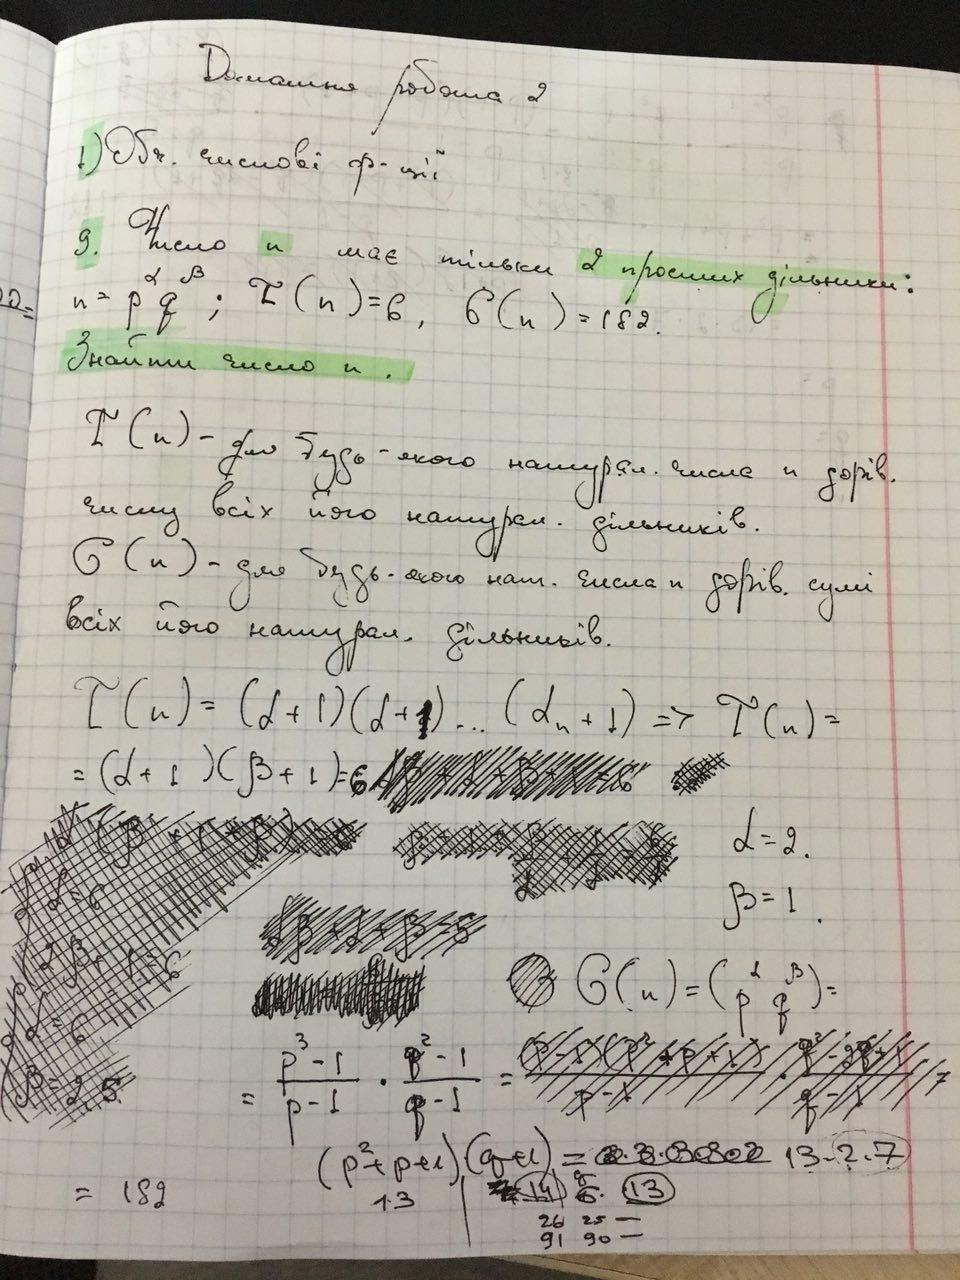 Домашня робота 2
1) Обч. числові ф-ції
9. Число n має тільки 2 простих дільники:
n = p^α q^β ; τ(n)=6, σ(n)=182.
Знайти число n.
τ(n) - для будь-якого натурал. числа n дорів.
числу всіх його натурал. дільників.
σ(n) - для будь-якого нат. числа n дорів. сумі
всіх його натурал. дільників.
τ(n) = (α+1)(α+1)...(αn+1) => τ(n)=
=(α+1)(β+1)=6
α=2.
β=1.
σ(n)=(p^α q^β)=
= p³-1/p-1 · q²-1/q-1 =
(p²+p+1)(q+1) = 13·2·7
= 182 13 14 13
26 25 —
91 90 —